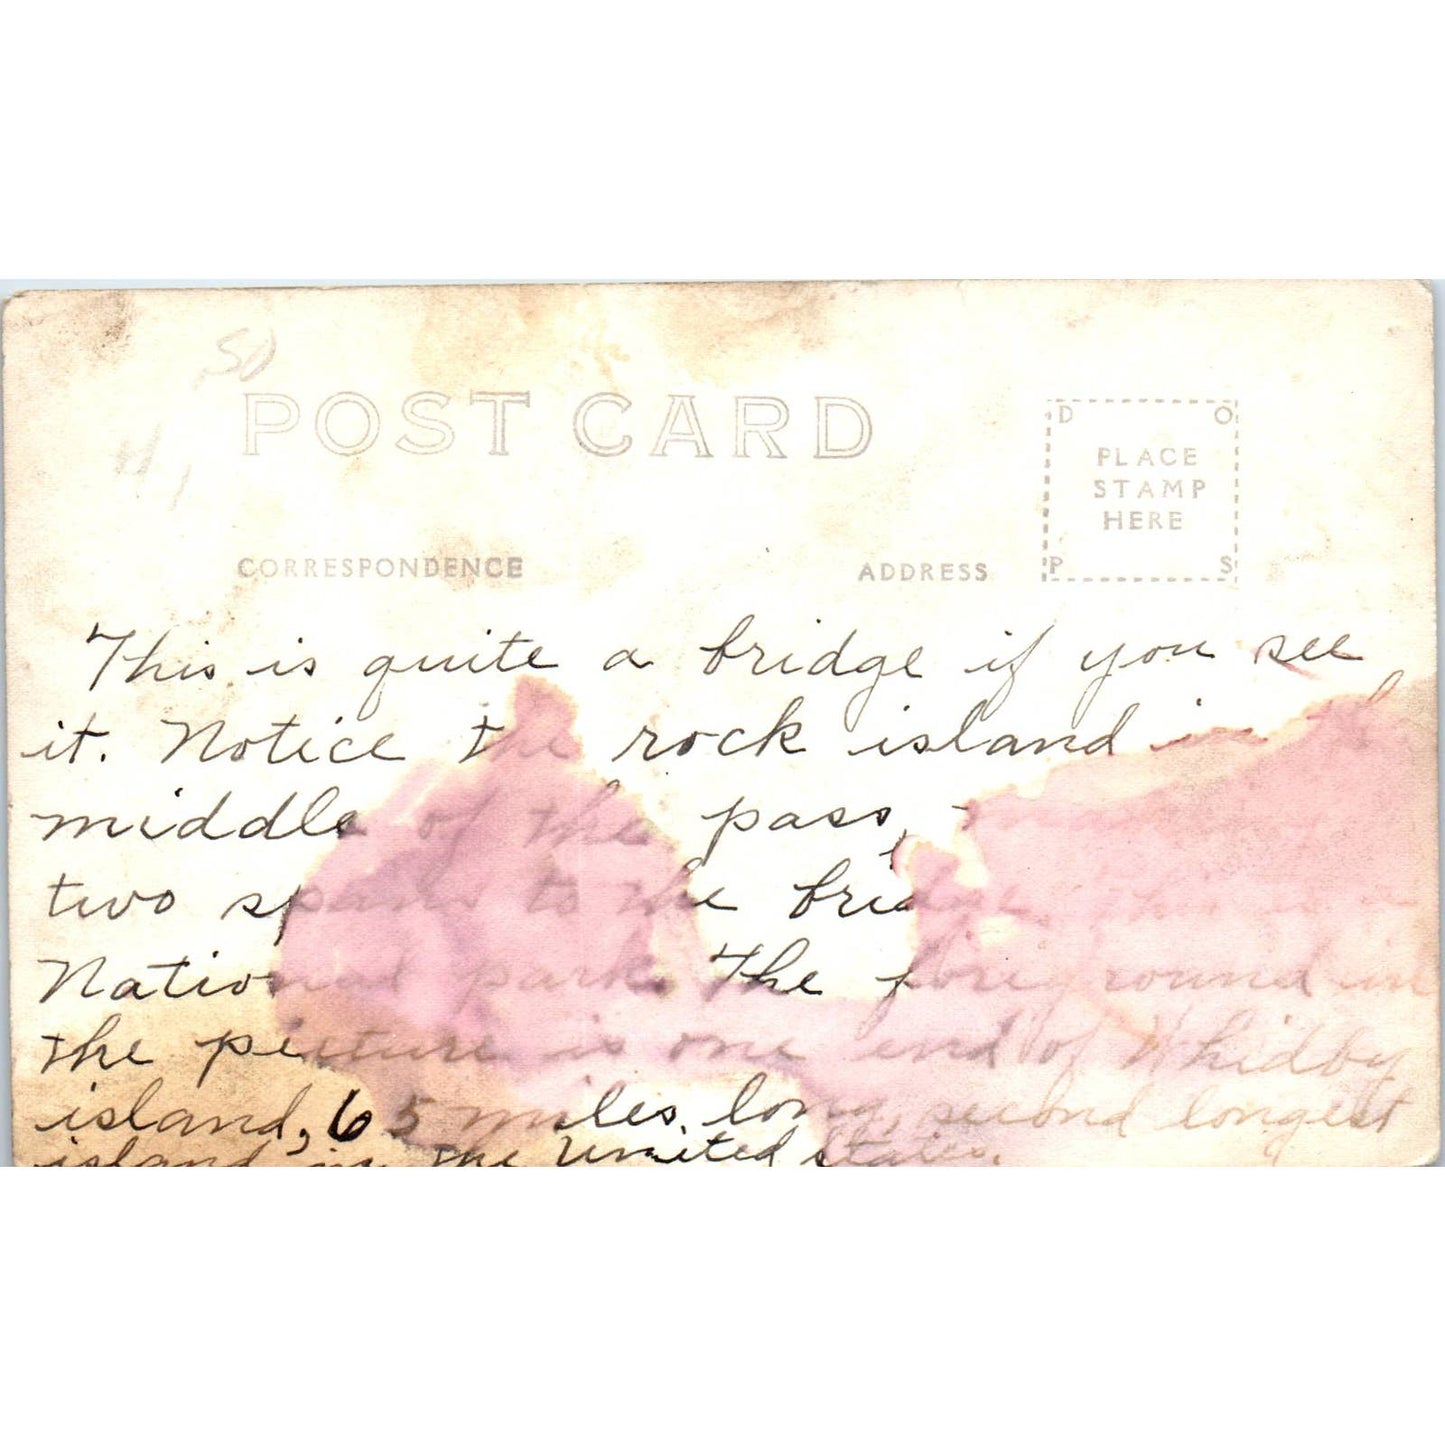 50
POST CARD
D O
PLACE
STAMP
HERE
P S
CORRESPONDENCE
ADDRESS
This is quite a bridge if you see
it. Notice the rock island in the
middle of the pass,
two spans to the bridge. This is a
National park. The foreground in
the picture is one end of Whidby
island, 65 miles long, second longest
island in the United States.